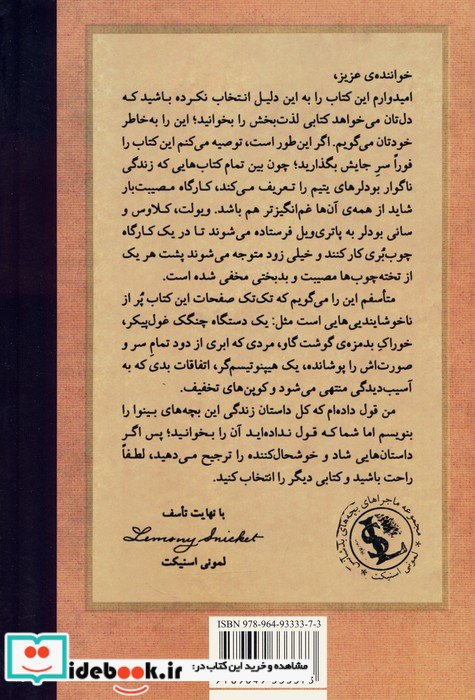 خواننده‌ی عزیز،
امیدوارم این کتاب را به این دلیل انتخاب نکرده باشید که
دل‌تان می‌خواهد کتابی لذت‌بخش را بخوانید؛ این را به‌خاطر
خودتان می‌گویم. اگر این‌طور است، توصیه می‌کنم این کتاب را
فوراً سرِ جایش بگذارید؛ چون بین تمام کتاب‌هایی که زندگی
ناگوار بودلرهای یتیم را تعریف می‌کند، کارگاه مصیبت‌بار
شاید از همه‌ی آن‌ها غم‌انگیزتر هم باشد. ویولت، کلاوس و
سانی بودلر به پاتری‌ویل فرستاده می‌شوند تا در یک کارگاه
چوب‌بُری کار کنند و خیلی زود متوجه می‌شوند پشت هر یک
از تخته‌چوب‌ها مصیبت و بدبختی مخفی شده است.
متأسفم این را می‌گویم که تک‌تک صفحات این کتاب پُر از
ناخوشایندیی‌هایی است مثل: یک دستگاه چنگک غول‌پیکر،
خوراکِ بدمزه‌ی گوشت گاو، مردی که ابری از دود تمامِ سر و
صورت‌اش را پوشانده، یک هیپنوتیسم‌گر، اتفاقات بدی که به
آسیب‌دیدگی منتهی می‌شود و کوپن‌های تخفیف.
من قول داده‌ام که کل داستان زندگی این بچه‌های بینوا را
بنویسم اما شما که قول نداده‌اید آن را بخوانید؛ پس اگر
داستان‌هایی شاد و خوشحال‌کننده را ترجیح می‌دهید، لطفاً
راحت باشید و کتابی دیگر را انتخاب کنید.
با نهایت تأسف
Lemony Snicket
لمونی اسنیکت
مجموعه ماجراهای بچه‌های بدشانس
لمونی اسنیکت
ISBN 978-964-93333-7-3
مشاهده و خرید این کتاب در:
idebook.ir